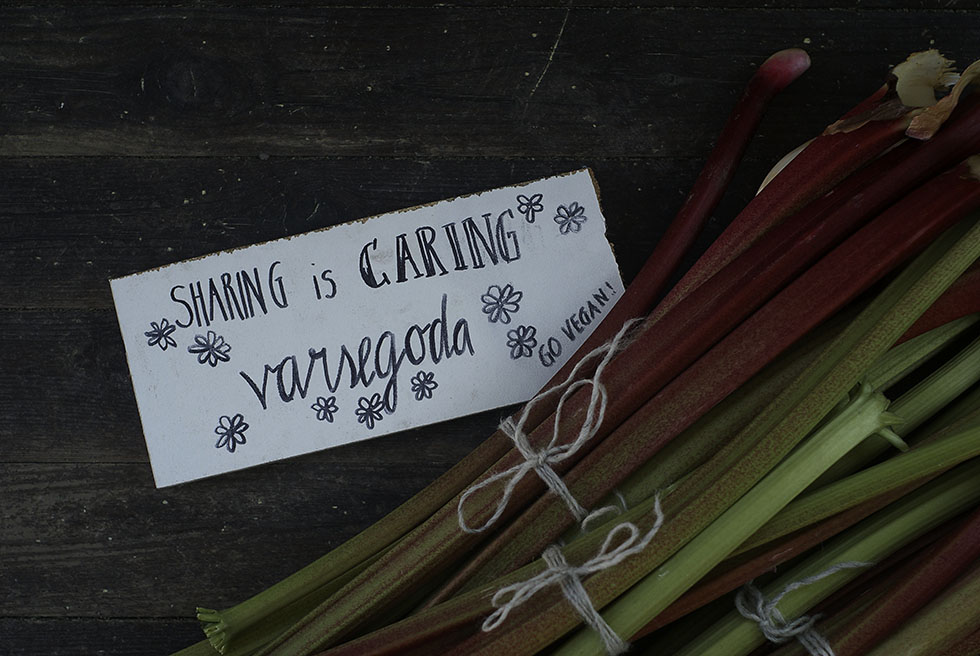 SHARING is CARING
varsegoda
GO VEGAN!